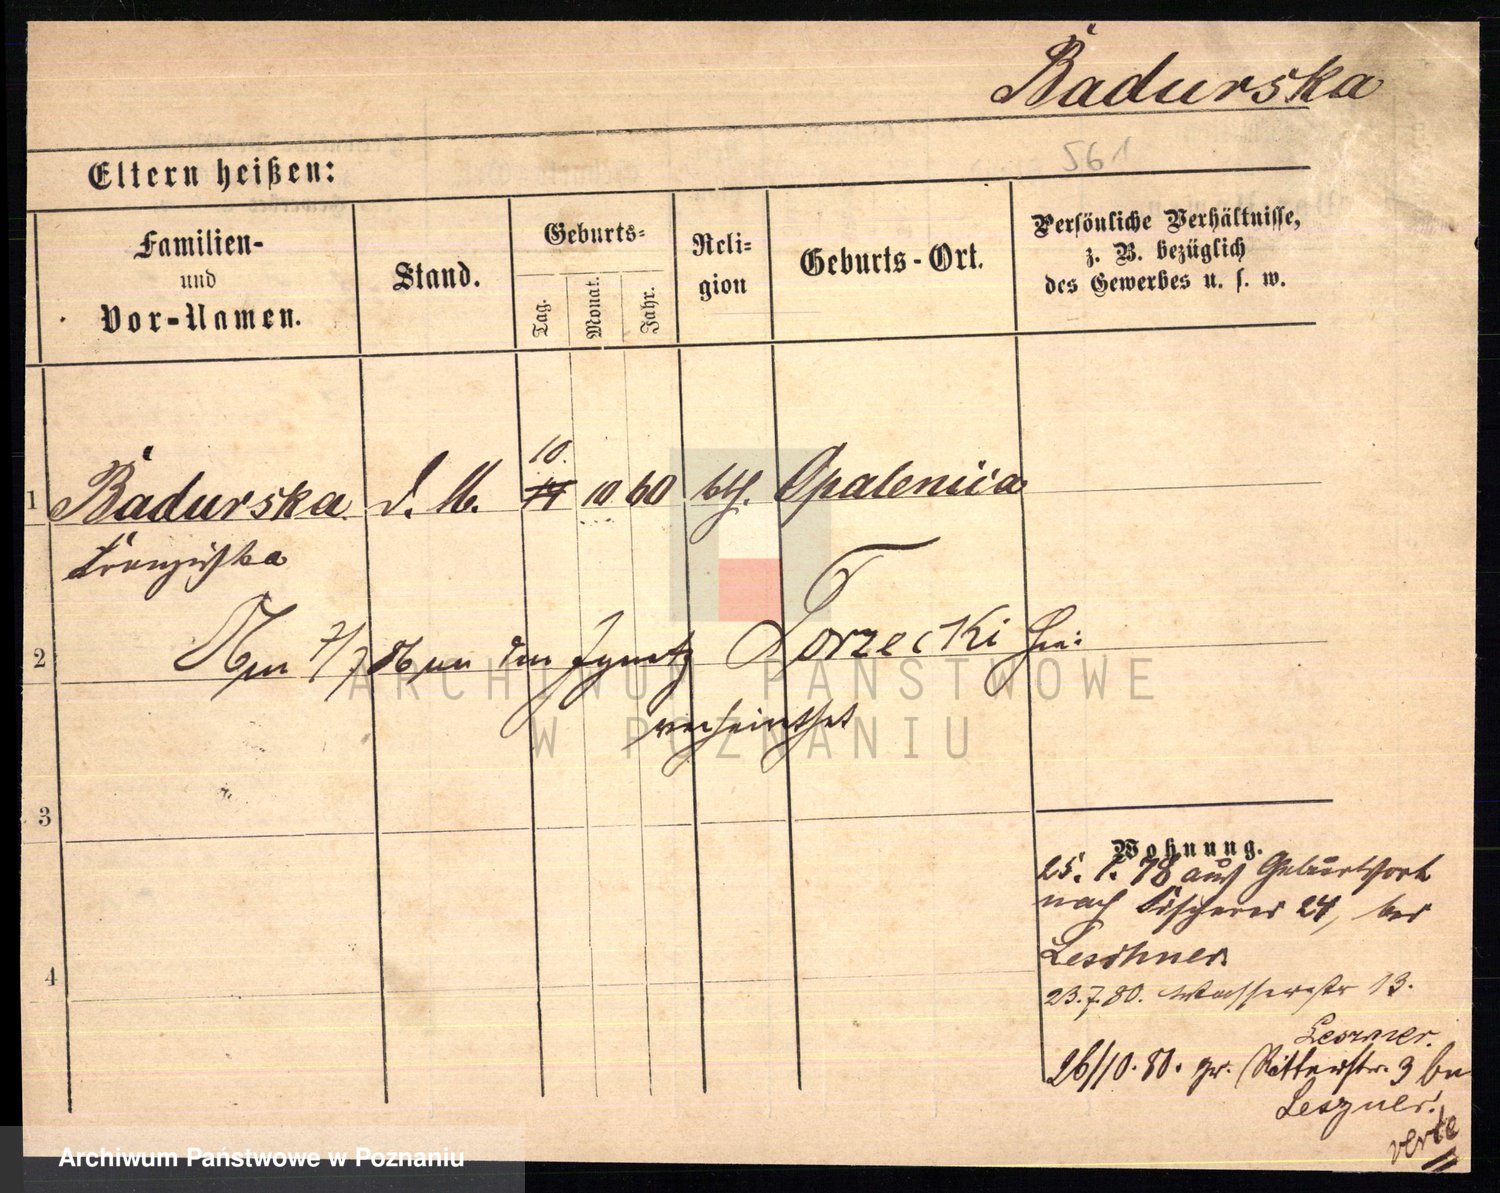 Badurska
561
Eltern heißen:
Familien-
und
Vor-Namen.
Stand.
Geburts-
Tag.
Monat.
Jahr.
Reli-
gion
Geburts-Ort.
Persönliche Verhältnisse,
z. B. bezüglich
des Gewerbes u. s. w.
10.
1 Badurska d. M. 10 60 kth. Opalenica
Franziska
2 7/7 86 den Ignatz Torzecki
verheirathet
3
Wohnung.
25. 1. 78 aus Geburtsort
nach Fischerei 24, bei
Leschner
4
23.7.80. Wasserstr 13.
Leszner.
26/10. 80. gr. Ritterstr. 9 bei
Leszner.
verte
ARCHIWUM PAŃSTWOWE
W POZNANIU
Archiwum Państwowe w Poznaniu